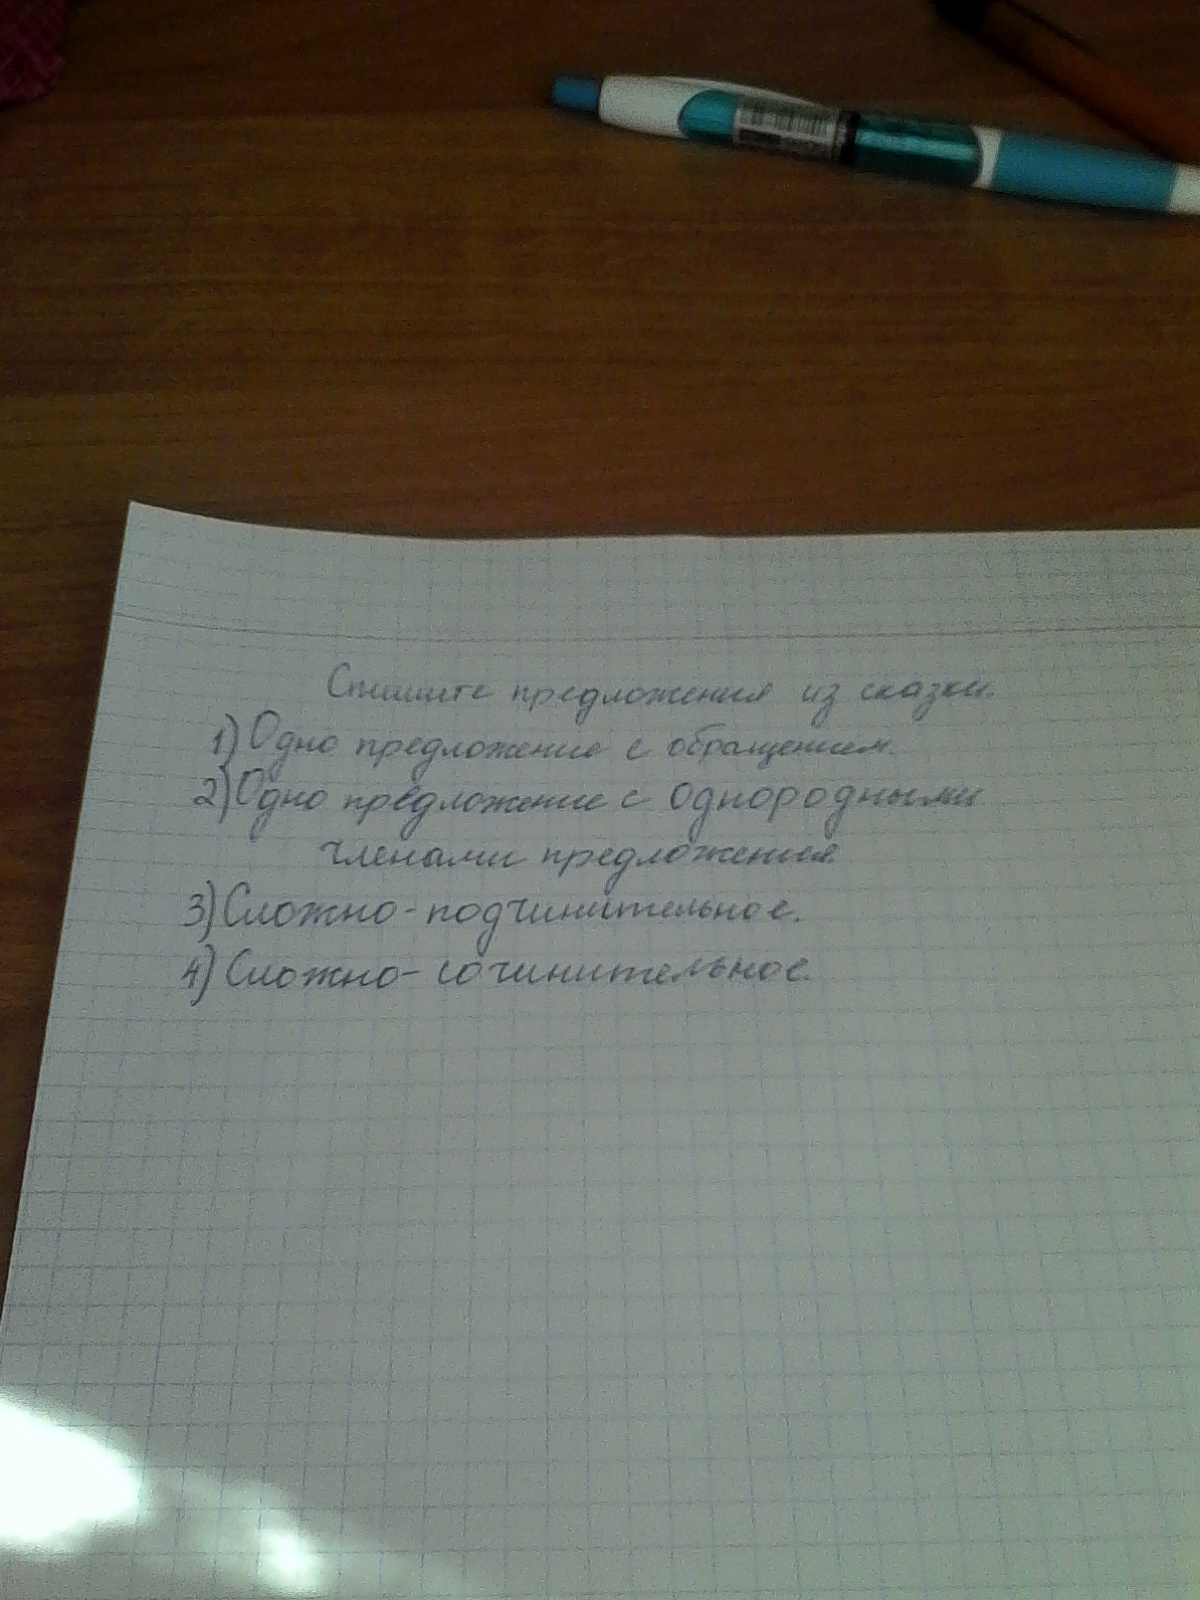 Спишите предложения из сказки.
1) Одно предложение с обращением.
2) Одно предложение с однородными
членами предложения.
3) Сложно-подчинительное.
4) Сложно-сочинительное.